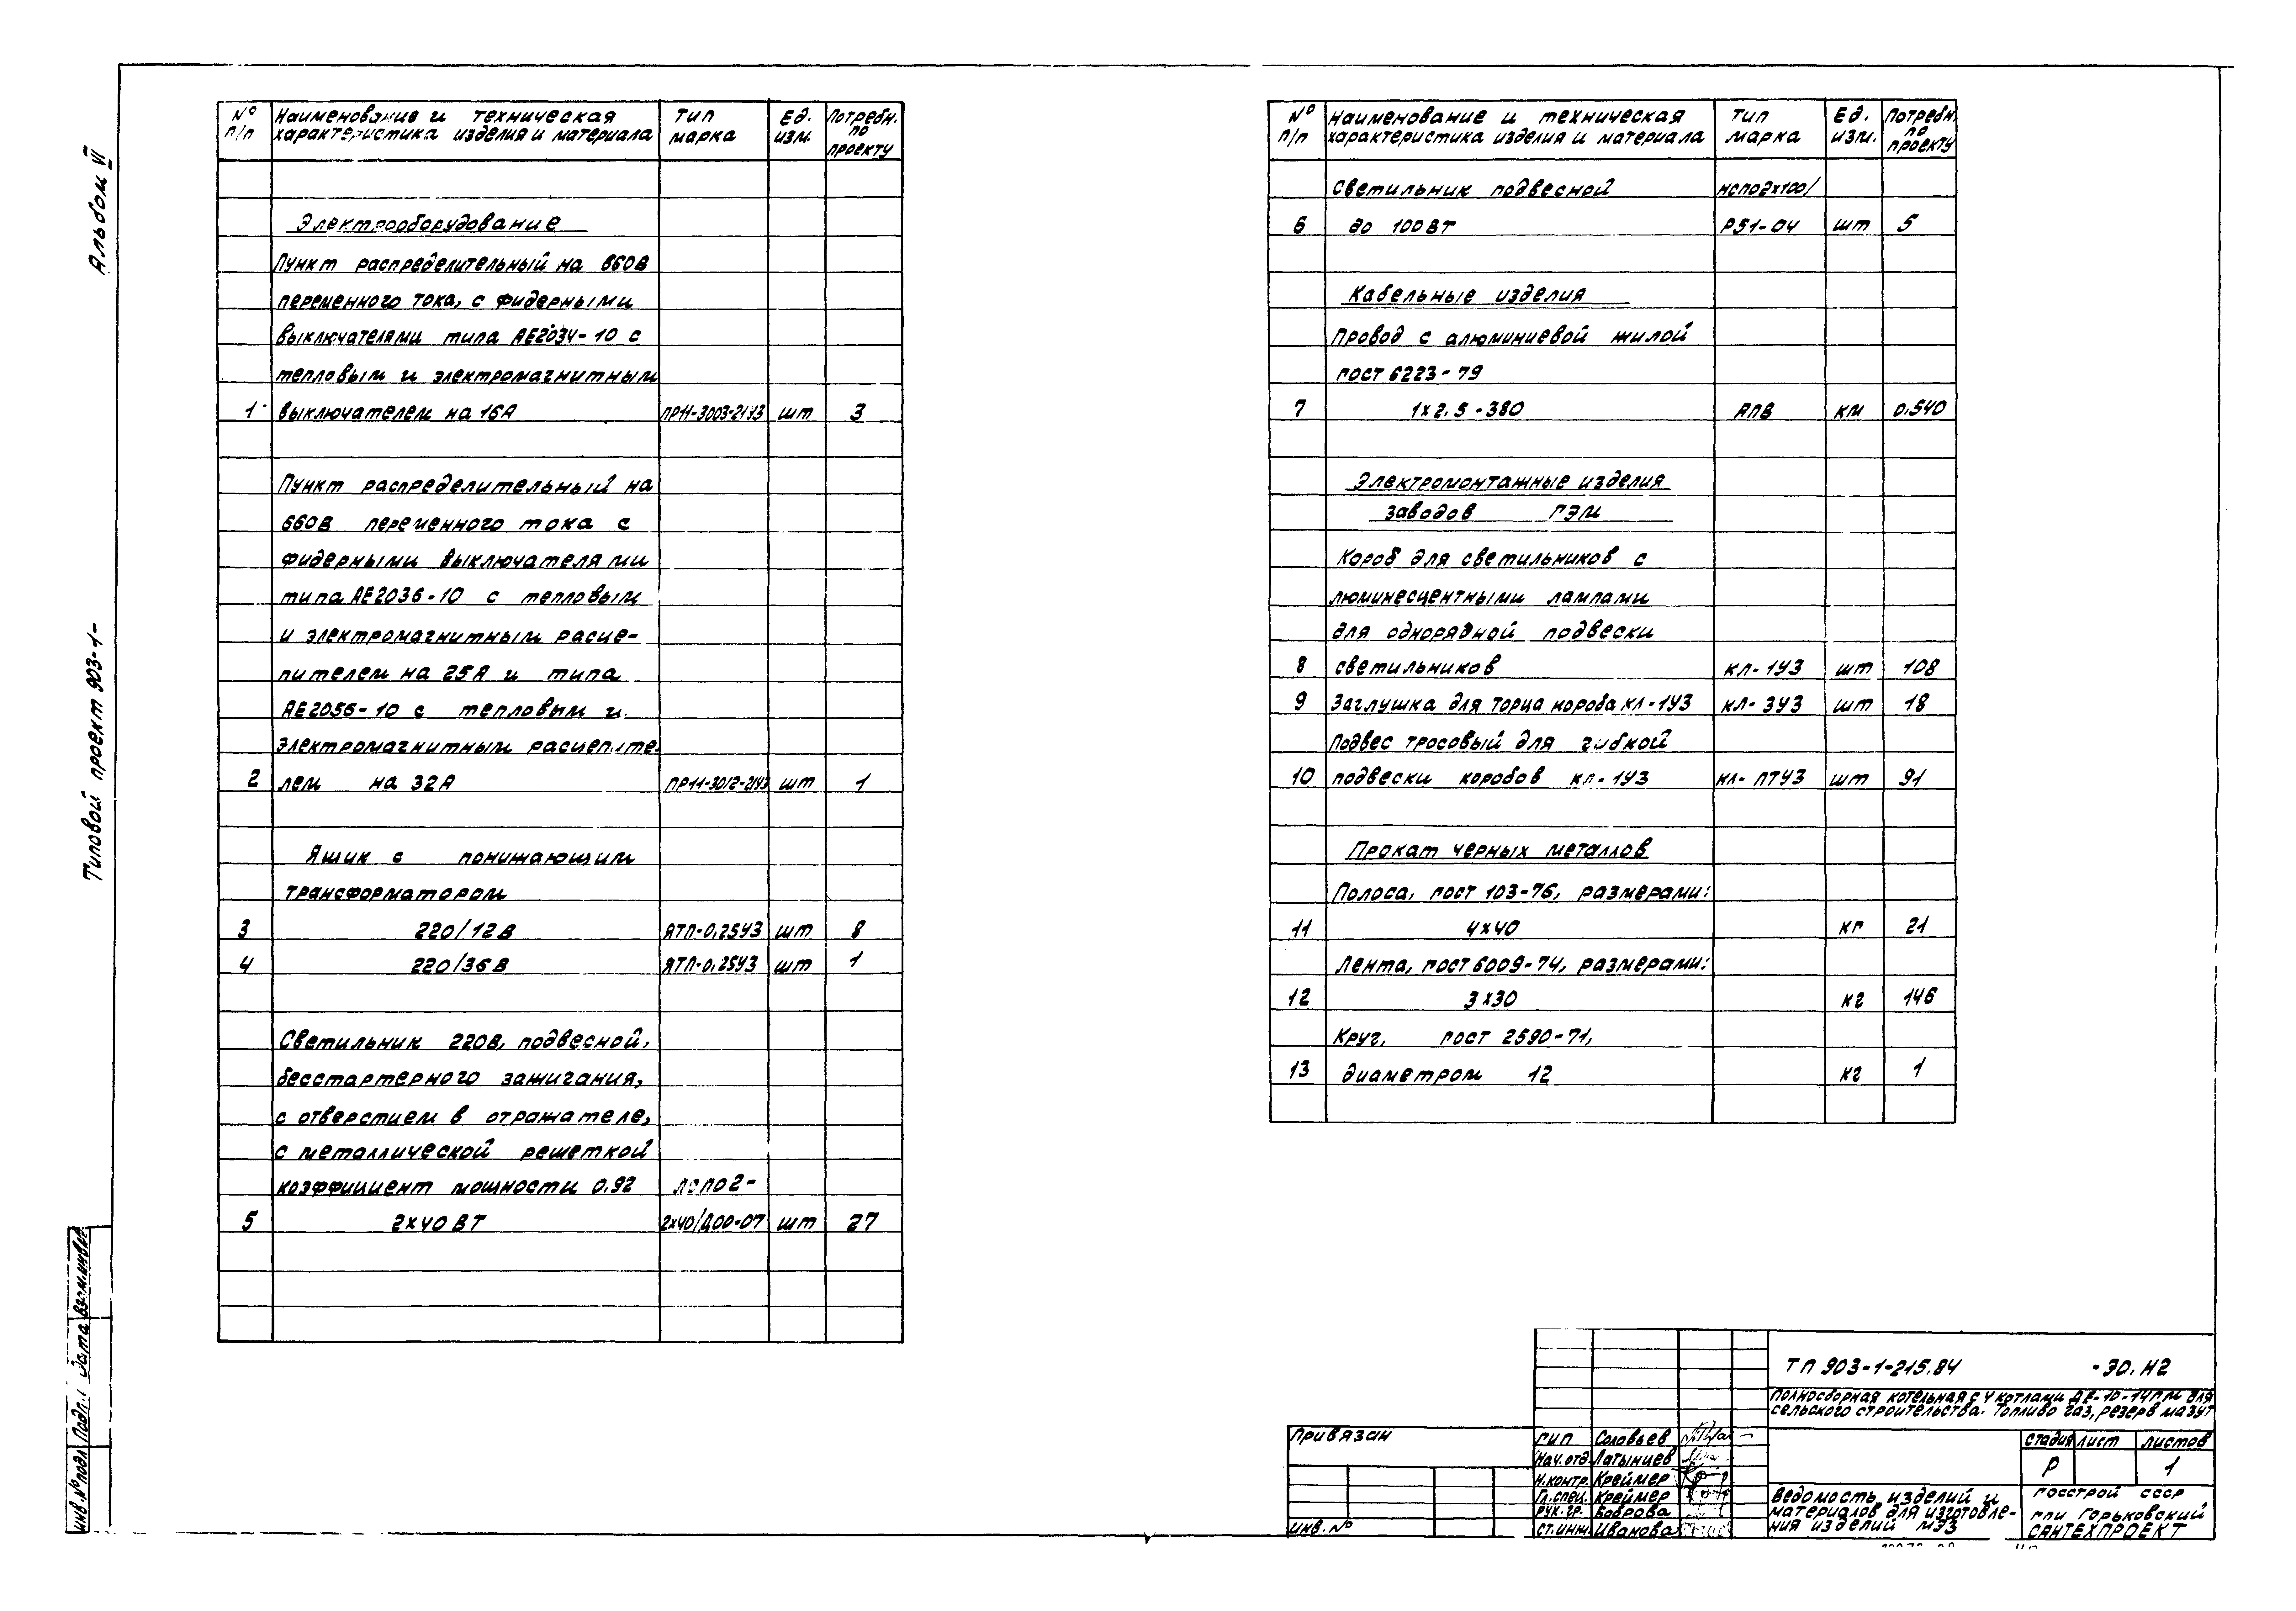 Альбом VI
Типовой проект 903-1-
№ п/п | Наименование и техническая характеристика изделия и материала | Тип марка | Ед. изм. | Потребн. по проекту
Электрооборудование
Пункт распределительный на 660В
переменного тока, с фидерными
выключателями типа АЕ2034-10 с
тепловым и электромагнитным
1 выключателем на 16А ПР11-3003-21У3 шт 3
Пункт распределительный на
660В переменного тока с
фидерными выключателями
типа АЕ2036-10 с тепловым
и электромагнитным расце-
пителем на 25А и типа
АЕ2056-10 с тепловым и
электромагнитным расцепите-
2 лем на 32А ПР11-3012-21У3 шт 1
Ящик с понижающим
трансформатором
3 220/12В ЯТП-0,25У3 шт 8
4 220/36В ЯТП-0,25У3 шт 1
Светильник 220В, подвесной,
бесстартерного зажигания,
с отверстием в отражателе,
с металлической решеткой
коэффициент мощности 0.92 ЛСП02-
5 2х40ВТ 2х40/Д00-07 шт 27
№ п/п | Наименование и техническая характеристика изделия и материала | Тип марка | Ед. изм. | Потребн. по проекту
Светильник подвесной НСП02х100/
6 до 100ВТ Р51-04 шт 5
Кабельные изделия
Провод с алюминиевой жилой
гост 6223-79
7 1х2.5-380 АПВ км 0.540
Электромонтажные изделия
заводов ГЭМ
Короб для светильников с
люминесцентными лампами
для однорядной подвески
8 светильников КЛ-1У3 шт 108
9 Заглушка для торца короба КЛ-1У3 КЛ-3У3 шт 18
Подвес тросовый для гибкой
10 подвески коробов КЛ-1У3 КЛ-ПТУ3 шт 91
Прокат черных металлов
Полоса, гост 103-76, размерами:
11 4х40 кг 21
Лента, гост 6009-74, размерами:
12 3х30 кг 146
Круг, гост 2590-71,
13 диаметром 12 кг 1
ТП 903-1-215.84 -ЭО.Н2
Полносборная котельная с 4 котлами ДЕ-10-14ГМ для
сельского строительства. Топливо газ, резерв мазут
Привязан
Инв. №
ГИП Соловьев
Нач.отд. Латынцев
Н.контр. Креймер
Гл.спец. Креймер
Рук.гр. Боброва
Ст.инж. Иванова
Стадия Лист Листов
Р 1
Ведомость изделий и
материалов для изготовле-
ния изделий МЭЗ
Госстрой СССР
ГПИ Горьковский
САНТЕХПРОЕКТ
Инв.№подл. Подп. и дата Взам.инв.№